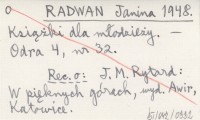 o RADWAN Janina 1948.
Książki dla młodzieży. —
Odra 4, nr 32.
Rec. o: J. M. Rytard:
W pięknych górach, wyd. Awir,
Katowice.